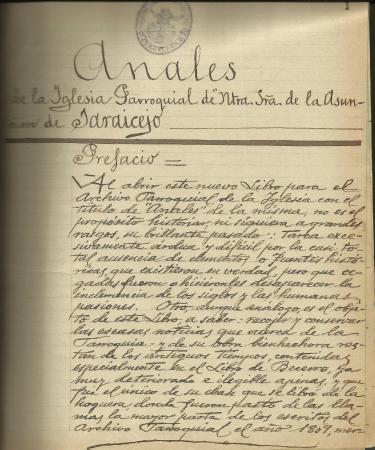 1
Anales
de la Iglesia Parroquial de "Ntra. Sra. de la Asun-
ción de Jaraicejo
Prefacio =
Al abrir este nuevo Libro para el
Archivo Parroquial de la Iglesia con el
título de "Anales" de la misma, no es el
propósito historiar, ni siquiera a grandes
rasgos, su brillante pasado: Tarea exce-
sivamente ardua y difícil por la casi to-
tal ausencia de elementos o fuentes histó-
ricas, que existieron en verdad, pero que ce-
gadas fueron o hiciéronles desaparecer la
inclemencia de los siglos y las humanas
pasiones. Otro, aunque análogo, es el obje-
to de este Libro a saber: recojer y conservar
las escasas noticias que acerca de la
Parroquia y de su labor bienhechora res-
tan de los antiguos tiempos, contenidas
especialmente en el Libro de Becerro, ya
muy deteriorado e ilegible apenas, y que
fué el único de su clase que se libró de la
hoguera donde fueron pasto de las lla-
mas la mayor parte de los escritos del
Archivo Parroquial, el año 1809, mer-